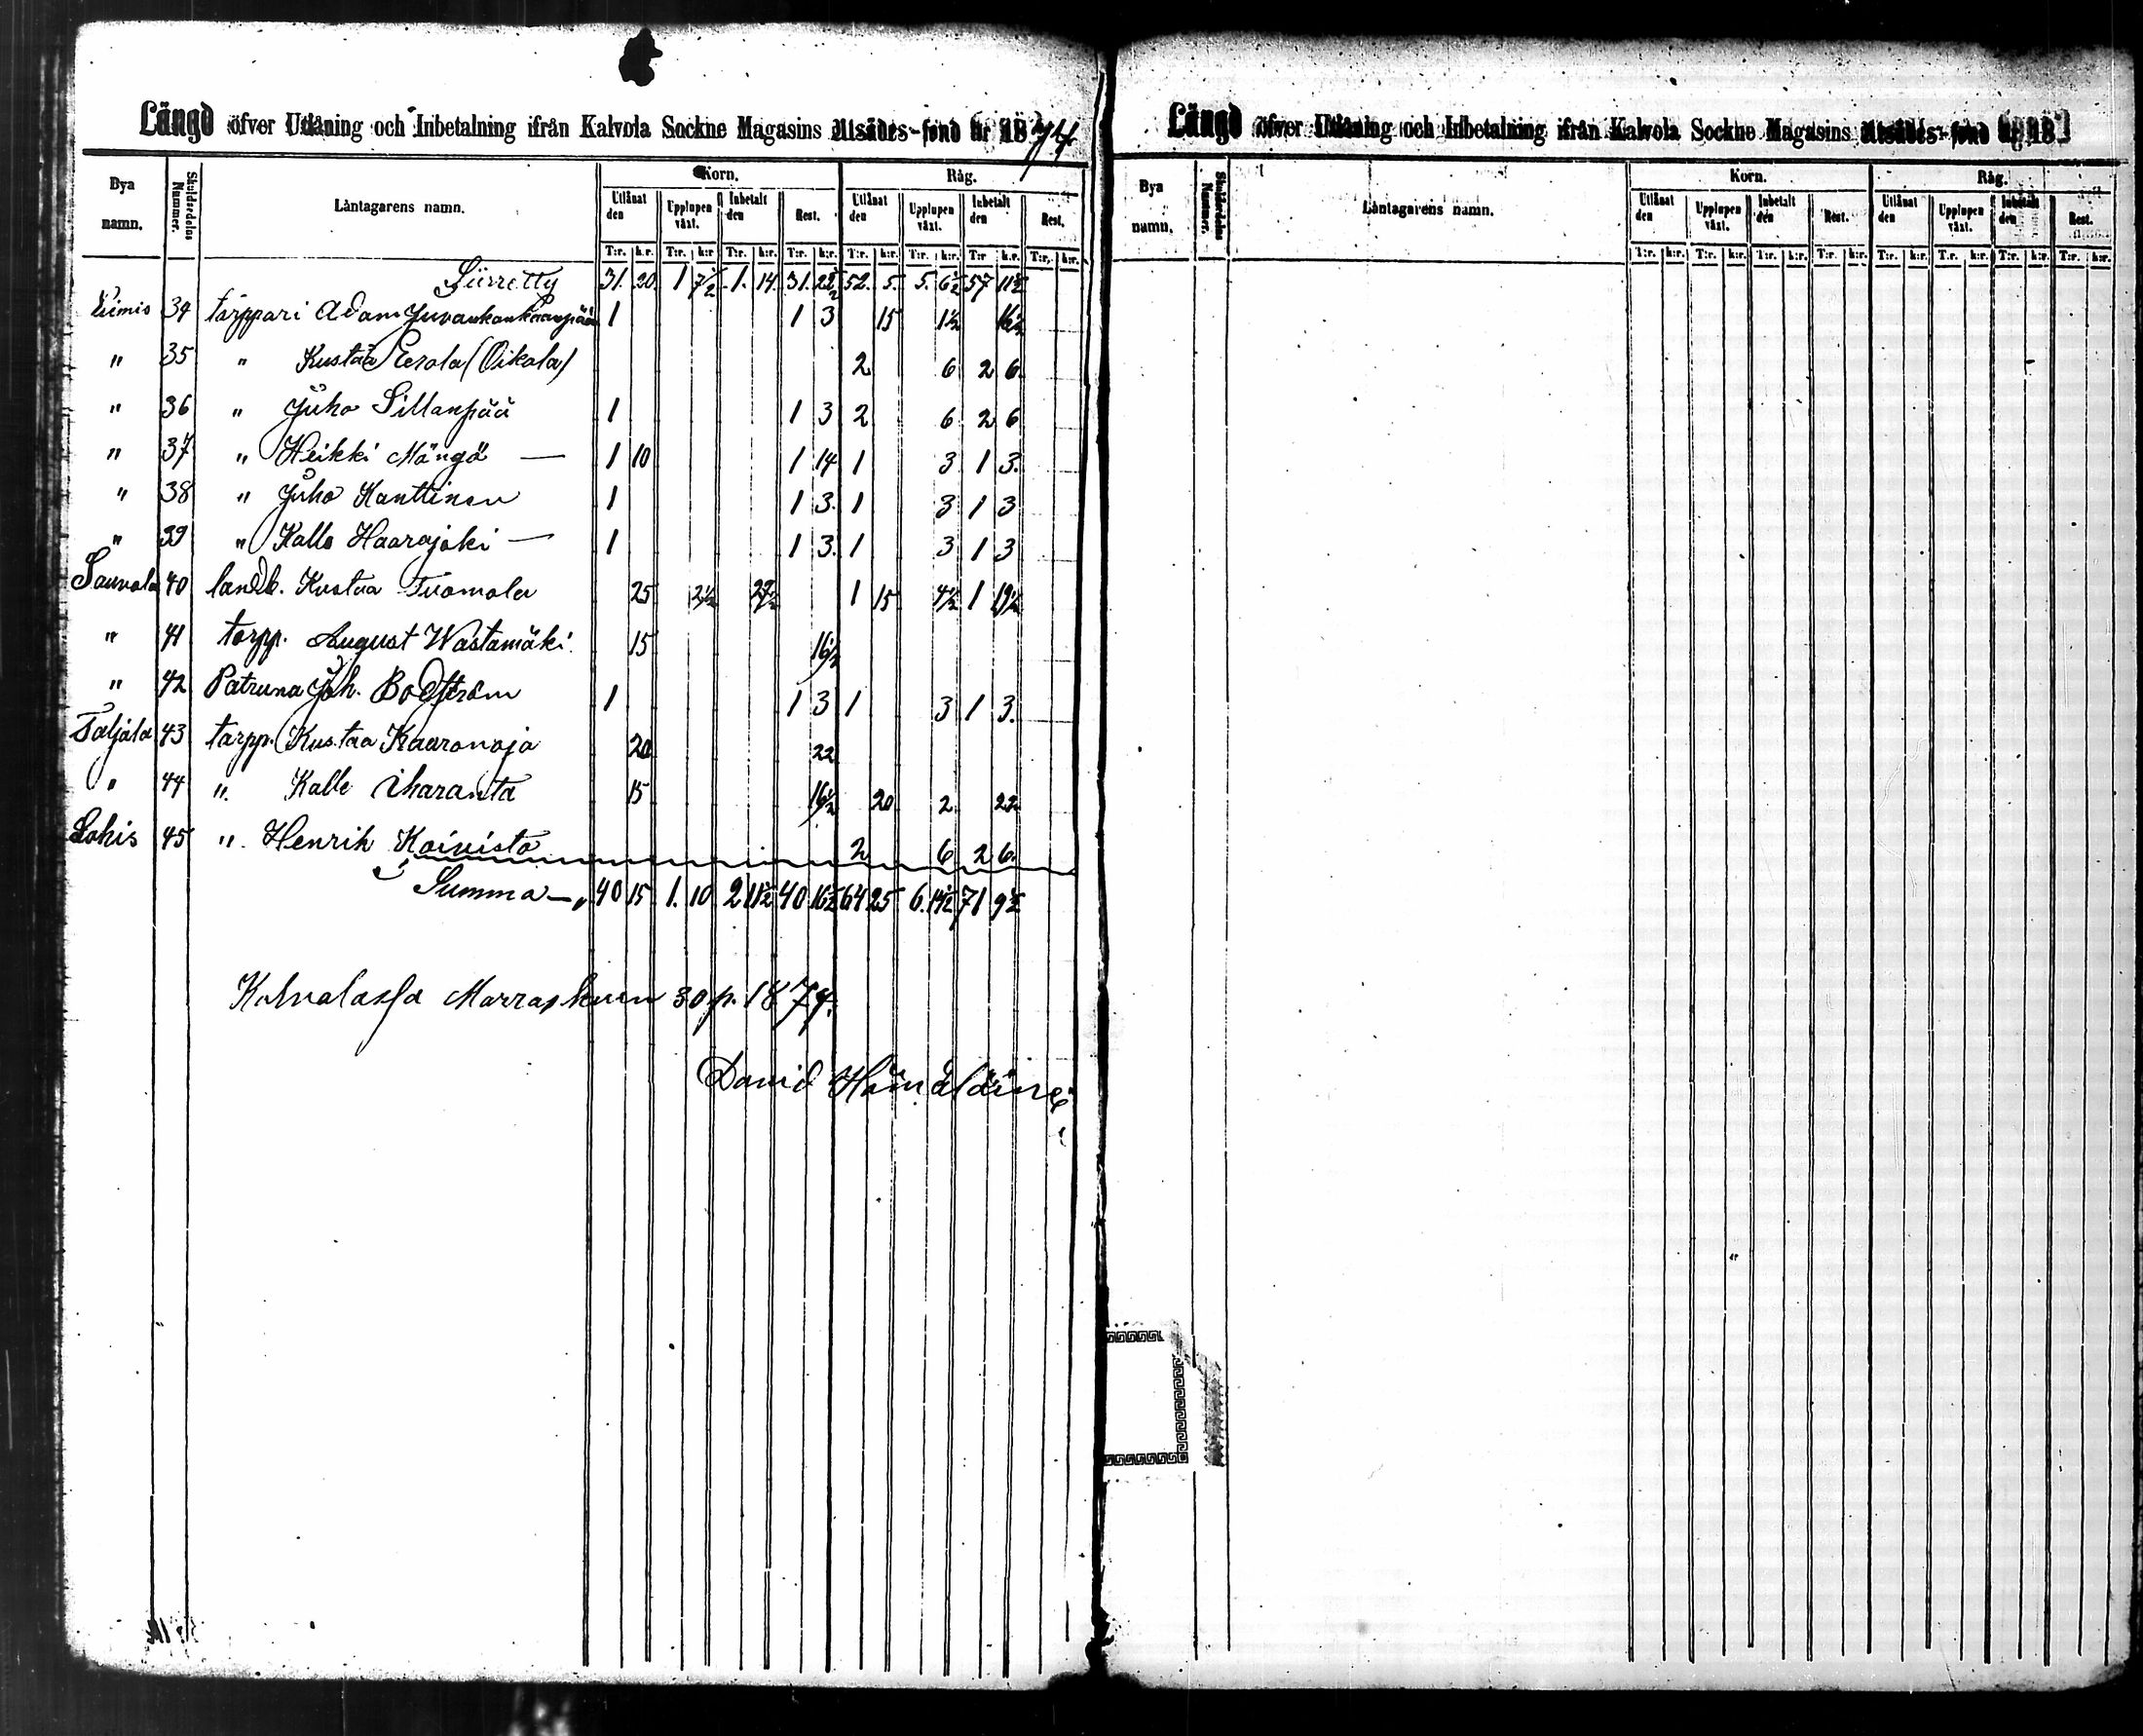 Längd öfver Utlåning och Inbetalning ifrån Kalvola Sockne Magasins Utsädes-fond år 1874
Bya namn. Skuldsedelns Nummer. Låntagarens namn. Korn. Råg.
Utlånat den Upplupen växt. Inbetalt den Rest. Utlånat den Upplupen växt. Inbetalt den Rest.
T:r. k:r. T:r. k:r T:r. k:r. T:r. k:r. T:r. k:r. T:r. k:r. T:r k:r. T:r. k:r.
Siirretty 31. 20. 1 7½ 1. 14. 31. 22½ 52. 5. 5. 6½ 57 11½
34 torppari Adam 1 1 3 15 1½ 16½
" 35 " Kustaa Eerola (Oikola) 2 6 2 6.
" 36 " Juho Sillanpää 1 1 3 2 6 2 6
" 37 " Heikki Mängö — 1 10 1 14 1 3 1 3.
" 38 " Juho Kanttinen 1 1 3. 1 3 1 3
" 39 " Kalle Haarajoki — 1 1 3. 1 3 1 3
Sauvala 40 landb. Kustaa Tuomola 25 2½ 27½ 1 15 4½ 1 19½
" 41 torpp. August Wastamäki 15 16½
" 42 Patruna Joh. Bodström 1 1 3 1 3 1 3.
Taljala 43 torpp. Kustaa Kaaronoja 20 22
" 44 ". Kalle Iharanta 15 16½ 20 2 22
Sohis 45 ". Henrik Koivisto 2 6 2 6.
Summa — 40 15 1. 10 2 11½ 40 16½ 64 25 6. 14½ 71 9½
Kalvolassa Marraskuun 30 p. 1874.
David Hämäläinen
Längd öfver Utlåning och Inbetalning ifrån Kalvola Sockne Magasins Utsädes-fond år 18
Bya namn. Skuldsedelns Nummer. Låntagarens namn. Korn. Råg.
Utlånat den Upplupen växt. Inbetalt den Rest. Utlånat den Upplupen växt. Inbetalt den Rest.
T:r. k:r. T:r. k:r. T:r. k:r. T:r. k:r. T:r. k:r. T:r. k:r. T:r. k:r. T:r. k:r.